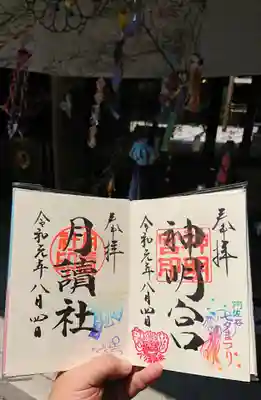 奉拝
神明宮
令和元年八月四日
阿佐谷
七夕まつり
奉拝
月讀社
令和元年八月四日